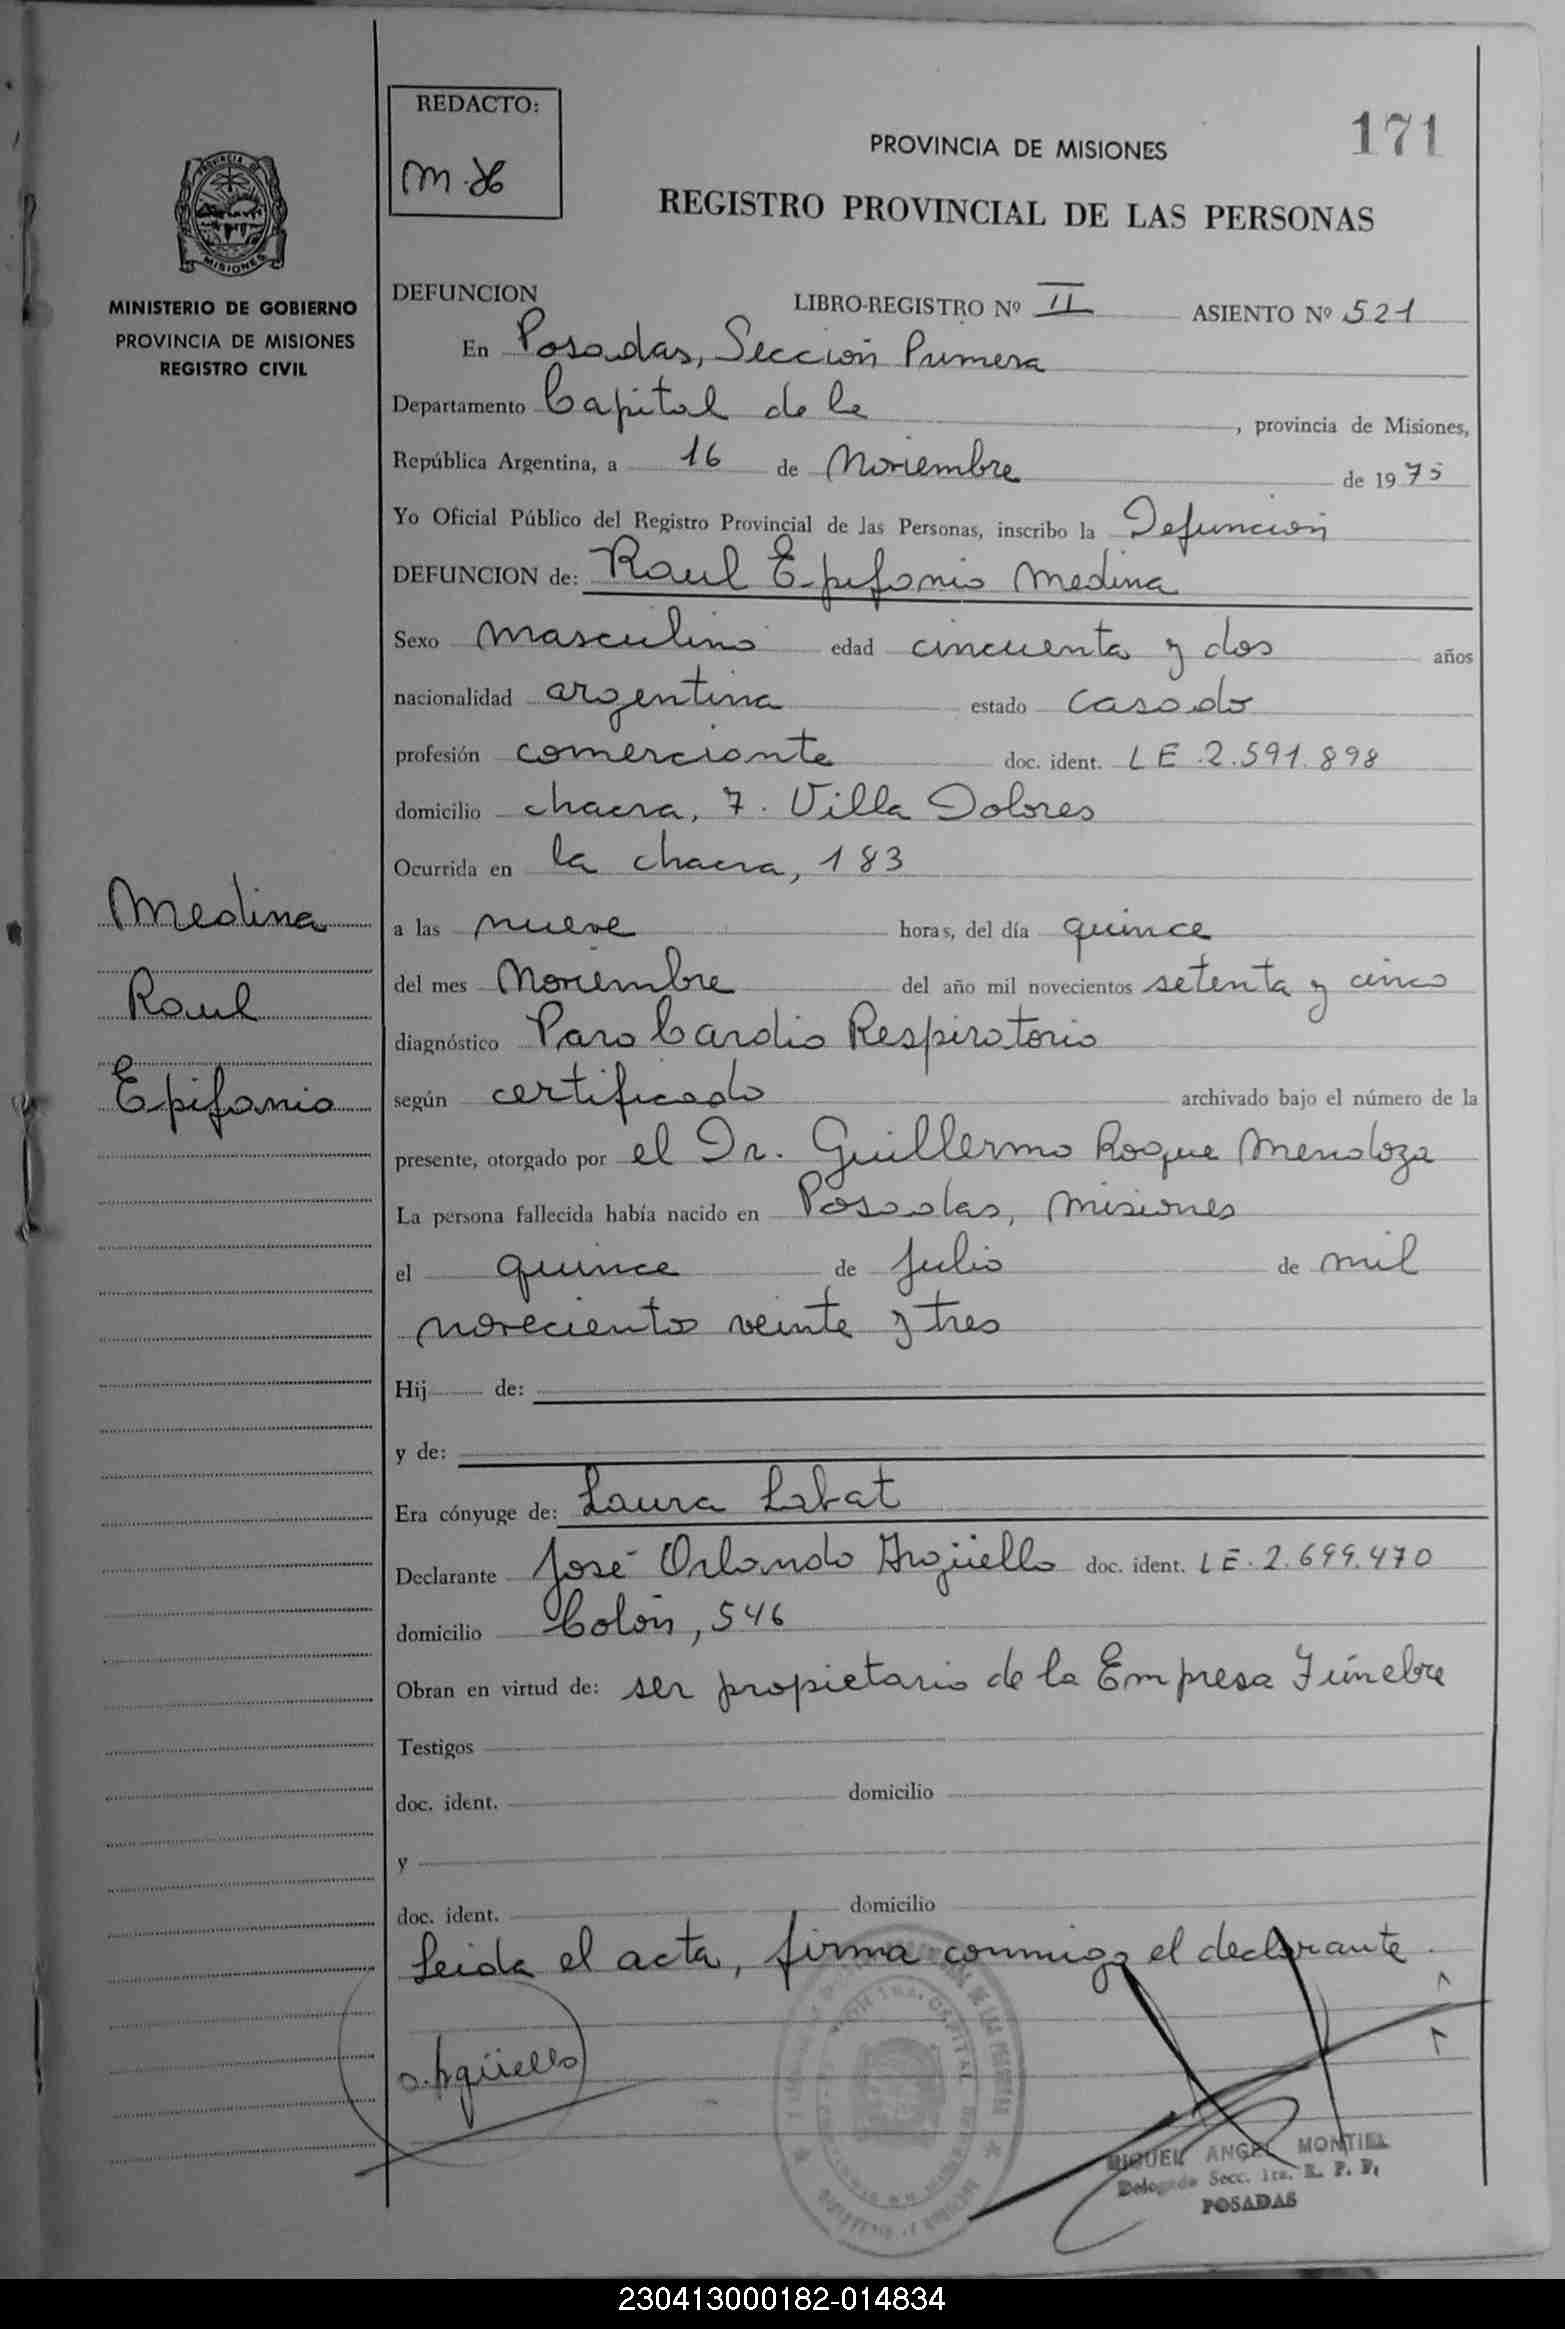 REDACTO:
171
PROVINCIA DE MISIONES
REGISTRO PROVINCIAL DE LAS PERSONAS
MISIONES
MINISTERIO DE GOBIERNO
PROVINCIA DE MISIONES
REGISTRO CIVIL
DEFUNCION LIBRO-REGISTRO Nº II ASIENTO Nº 521
En Posadas, Sección Primera
Departamento Capital de la , provincia de Misiones,
República Argentina, a 16 de Noviembre de 1975
Yo Oficial Público del Registro Provincial de las Personas, inscribo la Defunción
DEFUNCION de: Raul Epifanio Medina
Sexo masculino edad cincuenta y dos años
nacionalidad argentina estado casado
profesión comerciante doc. ident. LE.2.591.898
domicilio chacra, 7. Villa Dolores
Ocurrida en la chacra, 183
Medina
a las nueve horas, del día quince
del mes Noviembre del año mil novecientos setenta y cinco
Raul
diagnóstico Paro Cardio Respiratorio
Epifanio
según certificado archivado bajo el número de la
presente, otorgado por el Dr. Guillermo Roque Mendoza
La persona fallecida había nacido en Posadas, Misiones
el quince de Julio de mil
novecientos veinte y tres
Hij de:
y de:
Era cónyuge de: Laura Labat
Declarante José Orlando Argüello doc. ident. LE.2.699.470
domicilio Colón, 546
Obran en virtud de: ser propietario de la Empresa Fúnebre
Testigos
doc. ident. domicilio
y
doc. ident. domicilio
Leida el acta, firma conmigo el declarante.
O. Argüello
MIGUEL ANGEL MONTIEL
Delegado Secc. 1ra. R. P. P.
POSADAS
230413000182-014834